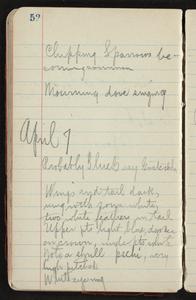 52
Chipping Sparrows be-
coming common
Mourning dove singing
April 7
Probably I luck
Wings and tail dark,
wing with some white,
two white feathers in tail
Upper pt. light blue, darker
on crown, under pt. white
Note a shrill peehe, very
high pitched
White eyering